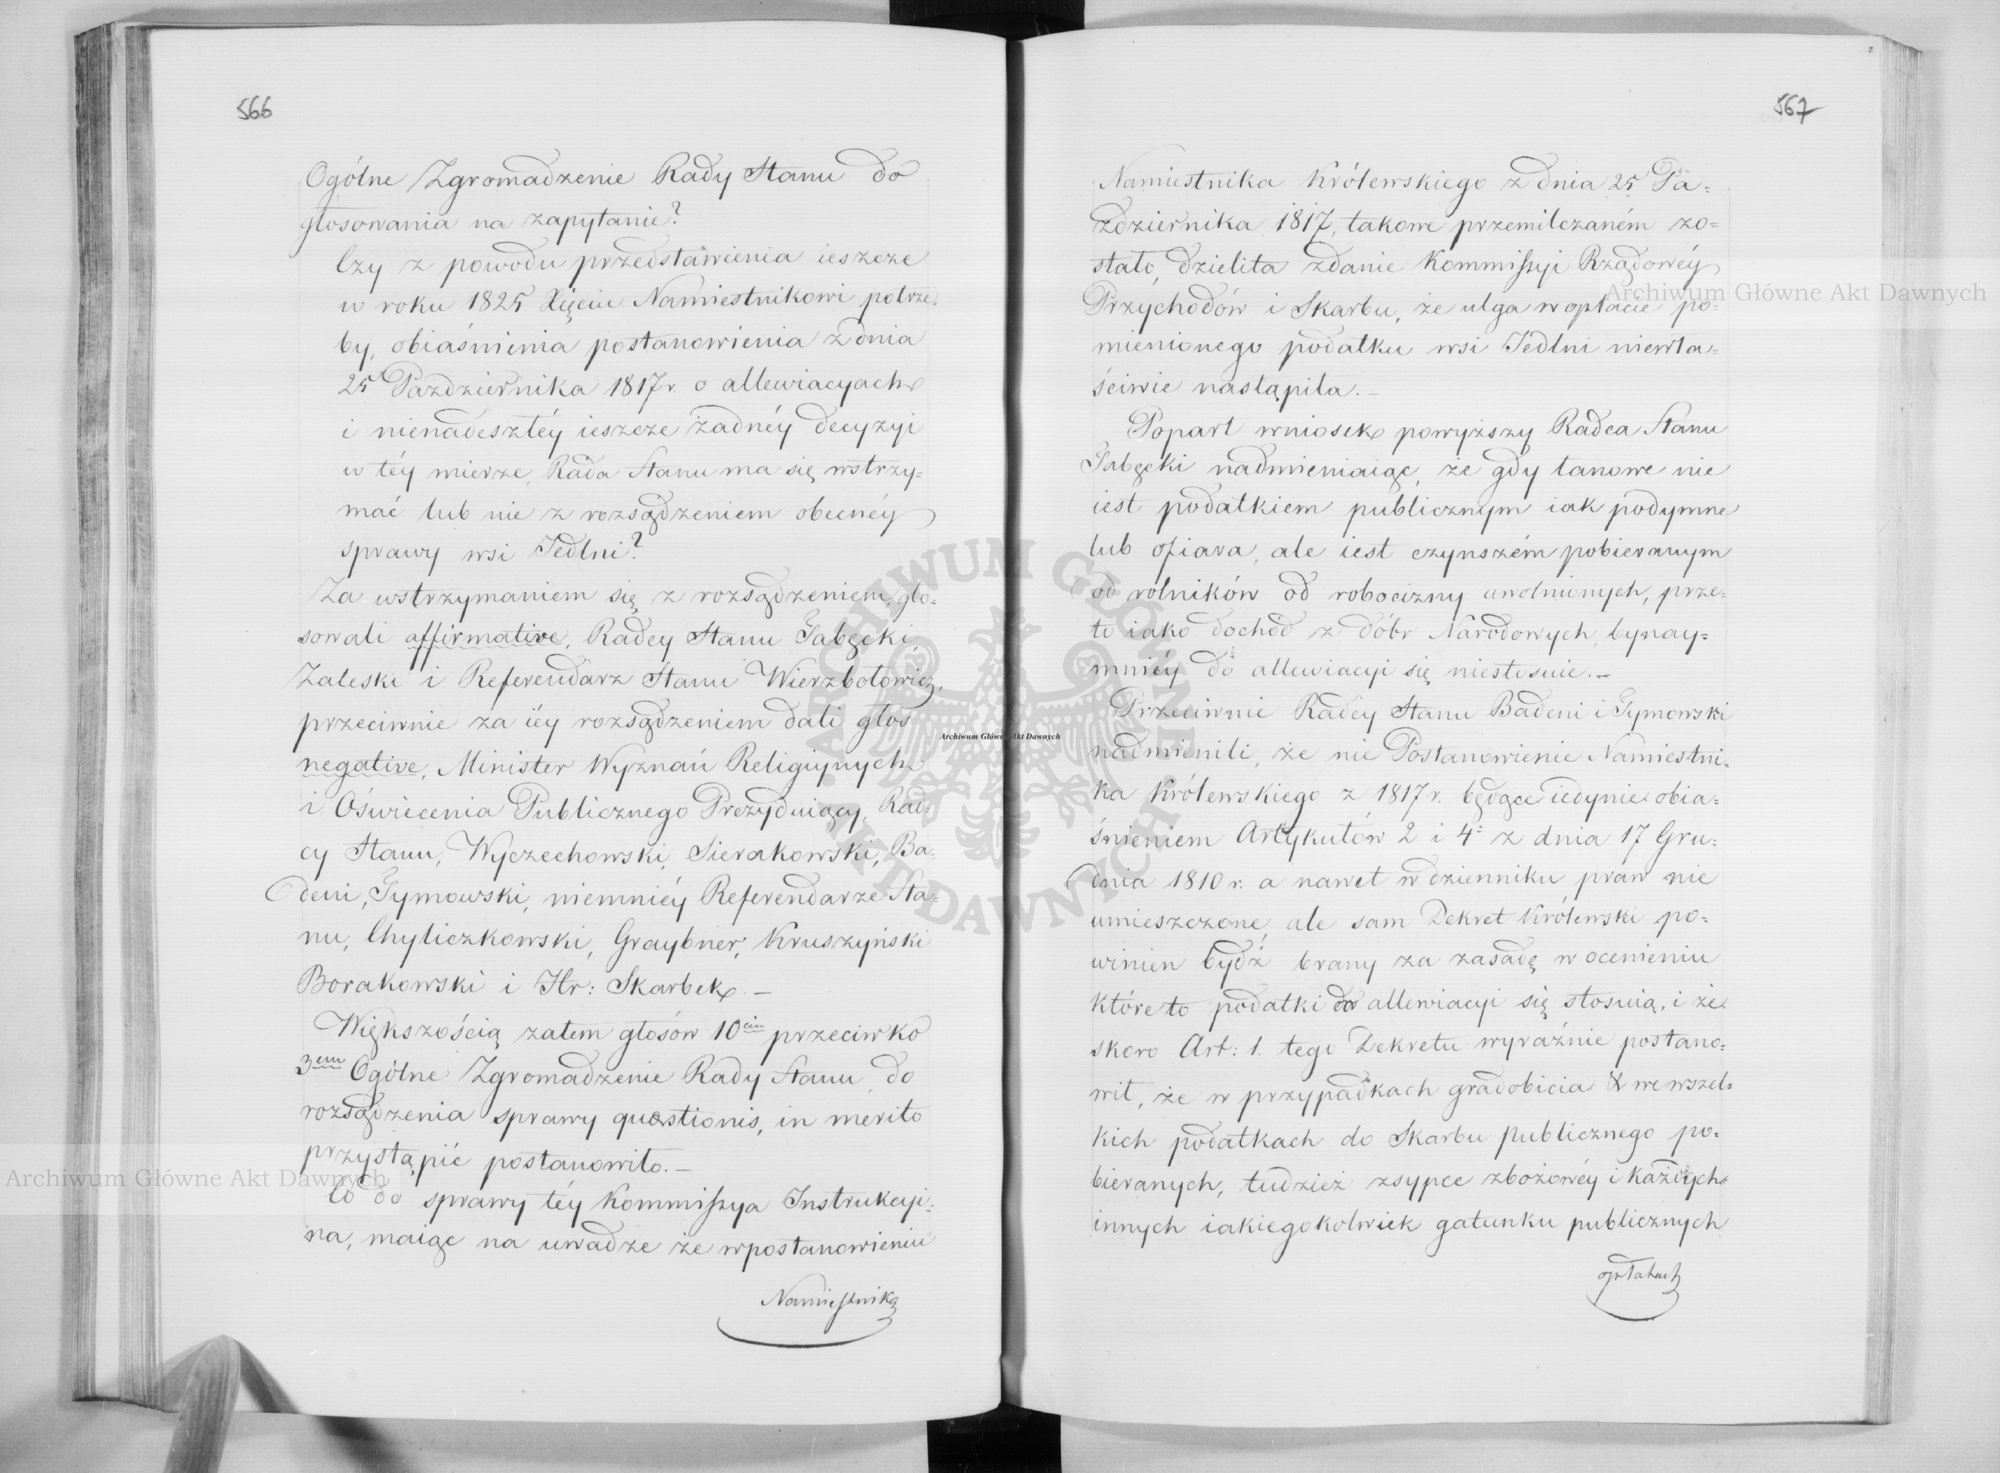 566
Ogólne Zgromadzenie Rady Stanu do
głosowania na zapytanie?
Czy z powodu przedstawienia ieszcze
w roku 1825 Xięciu Namiestnikowi potrze-
by, obiaśnienia postanowienia z dnia
25 Pazdziernika 1817 r. o allewiacyach
i nienadeszłéy ieszcze żadnéy decyzyi
w téy mierze, Rada Stanu ma się wstrzy-
mać lub nie z rozsądzeniem obecnéy
sprawy wsi Jedlni?
Za wstrzymaniem się z rozsądzeniem, gło-
sowali affirmative, Radcy Stanu Gabęcki,
Zaleski i Referendarz Stanu Wierzbołowicz,
przeciwnie za iéy rozsądzeniem dali głos
negative, Minister Wyznań Religiynych
i Oświecenia Publicznego Prezyduiący, Rad-
cy Stanu, Wyczechowski, Sierakowski, Ba-
deni, Tymowski, niemniéy Referendarze Sta-
nu, Chyliczkowski, Graybner, Kruszyński
Borakowski i Hr: Skarbek. —
Większością zatem głosów 10ciu przeciwko
3em Ogólne Zgromadzenie Rady Stanu do
rozsądzenia sprawy quæstionis, in merito
przystąpić postanowiło. —
Co do sprawy téy Kommissya Instrukcyi-
na, maiąc na uwadze że w postanowieniu
Namiestnika
567
Namiestnika Królewskiego z dnia 25 Pa-
ździernika 1817, takowe przemilczaném zo-
stało, dzieliła zdanie Kommissyi Rządowéy
Przychodów i Skarbu, że ulga w opłacie po-
mienionego podatku wsi Jedlni niewła-
ściwie nastąpiła. —
Poparł wniosek powyższy Radca Stanu
Gabęcki nadmieniaiąc, że gdy łanowe nie
iest podatkiem publicznym iak podymne
lub ofiara, ale iest czynszém pobieranym
od rolników od robocizny uwolnionych, prze-
to iako dochód z dóbr Narodowych, bynay-
mniéy do allewiacyi się niestosuie. —
Przeciwnie Radcy Stanu Badeni i Tymowski
nadmienili, że nie Postanowienie Namiestni-
ka Królewskiego z 1817 r. będące iedynie obia-
śnieniem Artykułów 2 i 4º z dnia 17 Gru-
dnia 1810 r. a nawet w dzienniku praw nie
umieszczone, ale sam Dekret Królewski po-
winien bydź brany za zasadę w ocenieniu
które to podatki do allewiacyi się stosuią, i że
skoro Art: 1. tego Dekretu wyraźnie postano-
wił, że w przypadkach gradobicia & we wszel-
kich podatkach do Skarbu publicznego po-
bieranych, tudzież zsypce zbożowéy i każdych
innych iakiegokolwiek gatunku publicznych
opłatach
Archiwum Główne Akt Dawnych
Archiwum Główne Akt Dawnych
Archiwum Główne Akt Dawnych
ARCHIWUM GŁÓWNE AKT DAWNYCH